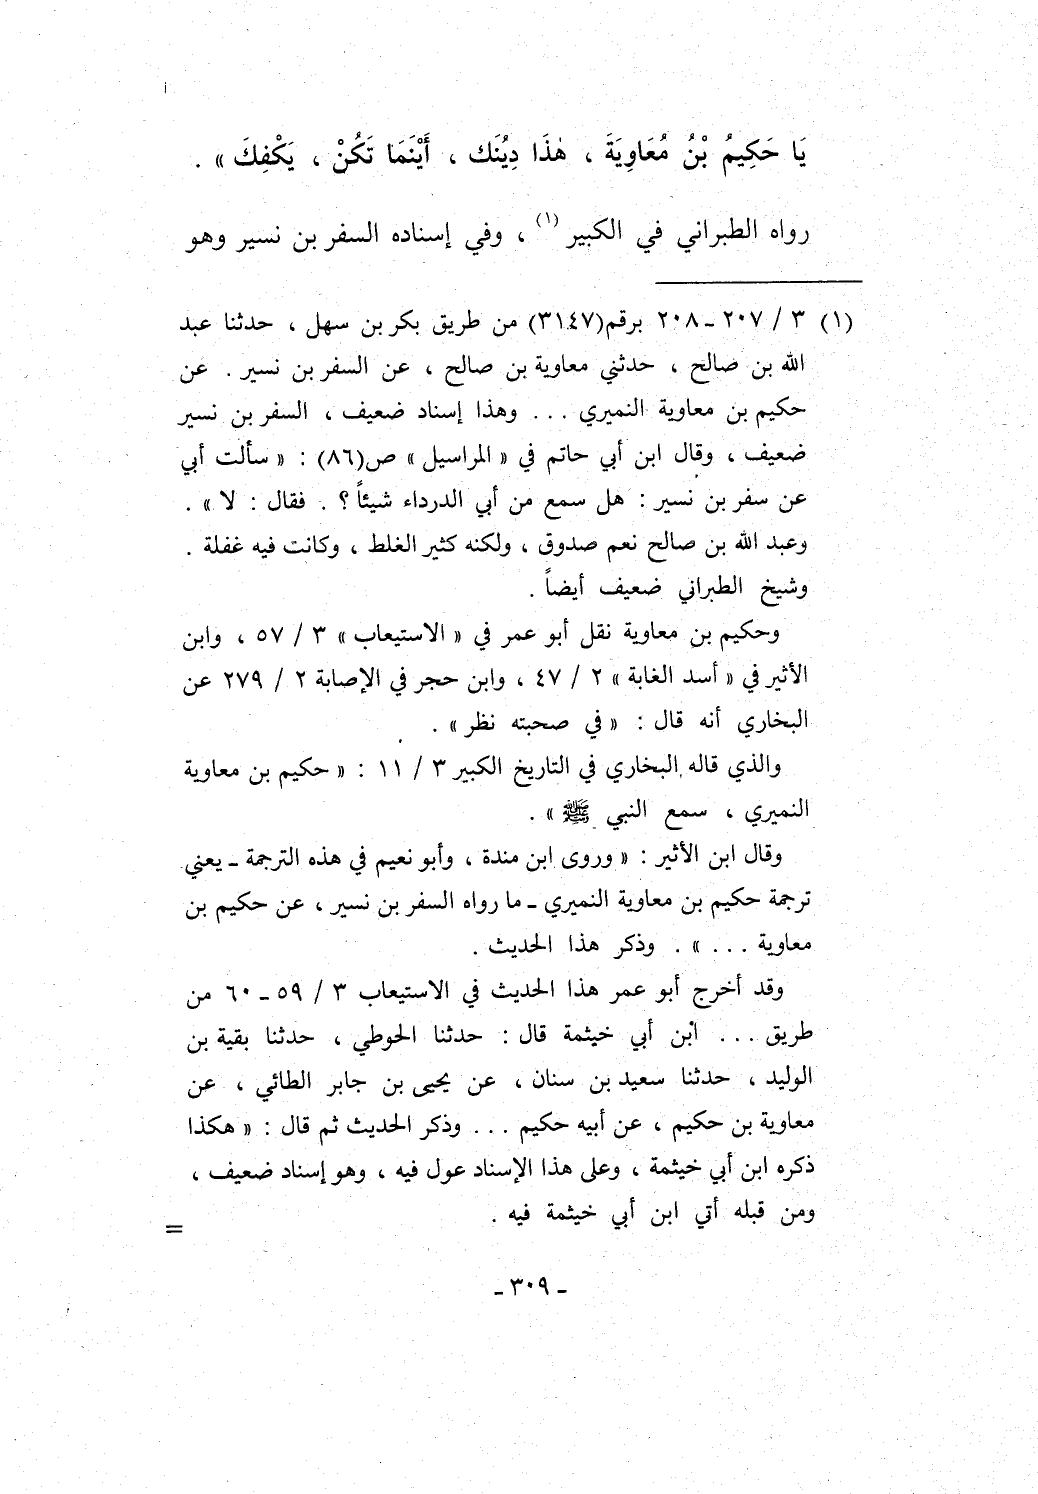 يَا حَكِيمُ بْنُ مُعَاوِيَةَ ، هٰذَا دِيُنَك ، أَيْنَمَا تَكُنْ ، يَكْفِكَ » .
رواه الطبراني في الكبير (١) ، وفي إسناده السفر بن نسير وهو
(١) ٣ / ٢٠٧ ـ ٢٠٨ برقم(٣١٤٧) من طريق بكر بن سهل ، حدثنا عبد
الله بن صالح ، حدثني معاوية بن صالح ، عن السفر بن نسير . عن
حكيم بن معاوية النميري ... وهذا إسناد ضعيف ، السفر بن نسير
ضعيف ، وقال ابن أبي حاتم في « المراسيل » ص(٨٦) : « سألت أبي
عن سفر بن نسير : هل سمع من أبي الدرداء شيئاً ؟ . فقال : لا » .
وعبد الله بن صالح نعم صدوق ، ولكنه كثير الغلط ، وكانت فيه غفلة .
وشيخ الطبراني ضعيف أيضاً .
وحكيم بن معاوية نقل أبو عمر في « الاستيعاب » ٣ / ٥٧ ، وابن
الأثير في « أسد الغابة » ٢ / ٤٧ ، وابن حجر في الإصابة ٢ / ٢٧٩ عن
البخاري أنه قال : « في صحبته نظر » .
والذي قاله البخاري في التاريخ الكبير ٣ / ١١ : « حكيم بن معاوية
النميري ، سمع النبي ﷺ » .
وقال ابن الأثير : « وروى ابن مندة ، وأبو نعيم في هذه الترجمة ـ يعني
ترجمة حكيم بن معاوية النميري ـ ما رواه السفر بن نسير ، عن حكيم بن
معاوية ... » . وذكر هذا الحديث .
وقد أخرج أبو عمر هذا الحديث في الاستيعاب ٣ / ٥٩ ـ ٦٠ من
طريق ... ابن أبي خيثمة قال : حدثنا الحوطي ، حدثنا بقية بن
الوليد ، حدثنا سعيد بن سنان ، عن يحيى بن جابر الطائي ، عن
معاوية بن حكيم ، عن أبيه حكيم ... وذكر الحديث ثم قال : « هكذا
ذكره ابن أبي خيثمة ، وعلى هذا الإسناد عول فيه ، وهو إسناد ضعيف ،
ومن قبله أتي ابن أبي خيثمة فيه .
=
ـ ٣٠٩ ـ